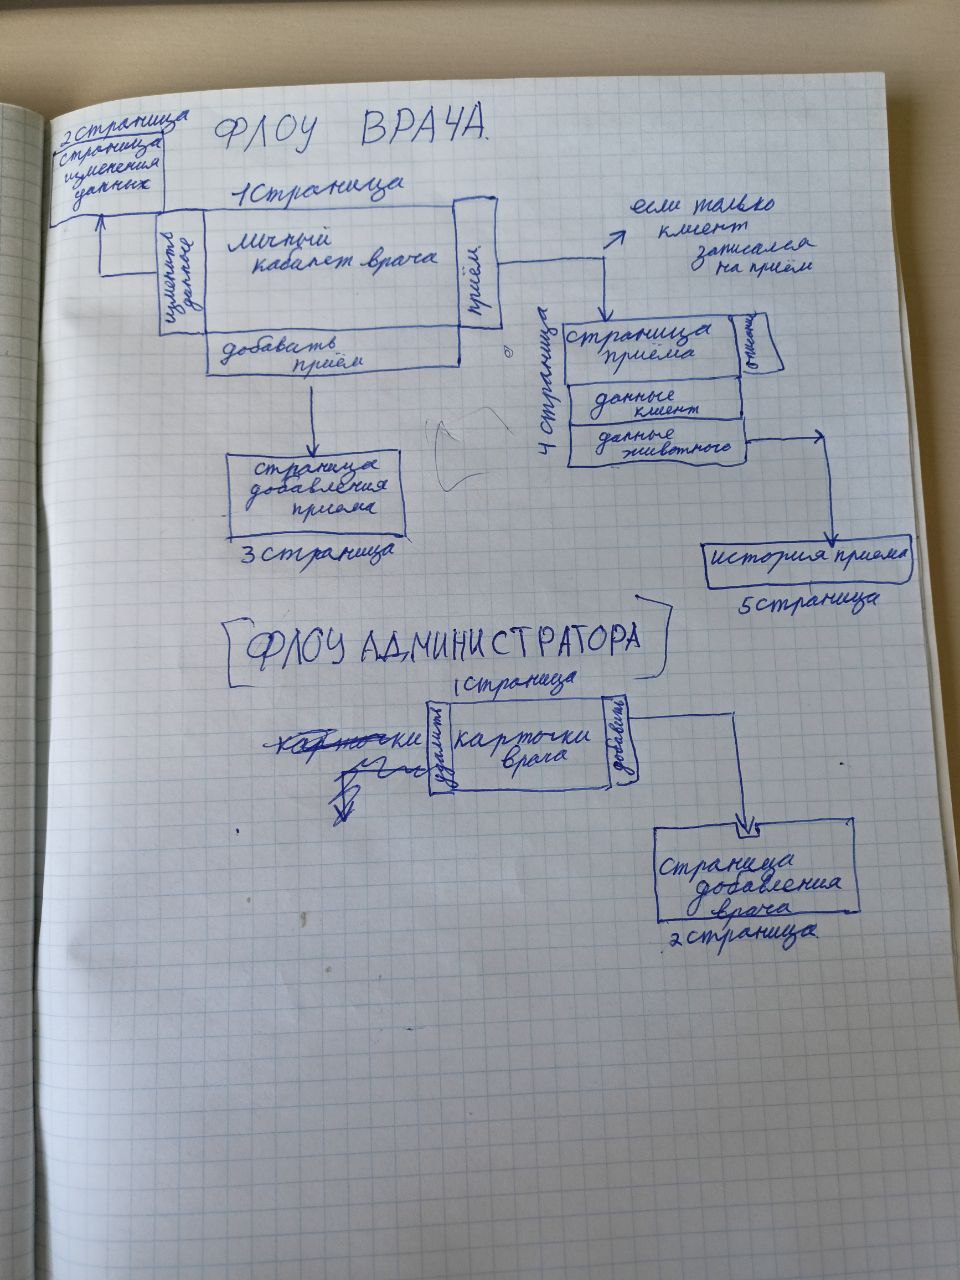 ФЛОУ ВРАЧА.
2 страница
страница
изменения
данных
1 страница
изменить
данные
личный
кабинет врача
приём
добавить
приём
если только
клиент
записался
на приём
4 страница
страница
приёма
данные
клиент
данные
животного
страница
добавления
приема
3 страница
история приема
5 страница
ФЛОУ АДМИНИСТРАТОРА
1 страница
удалить
карточки
врача
добавить
страница
добавления
врача
2 страница